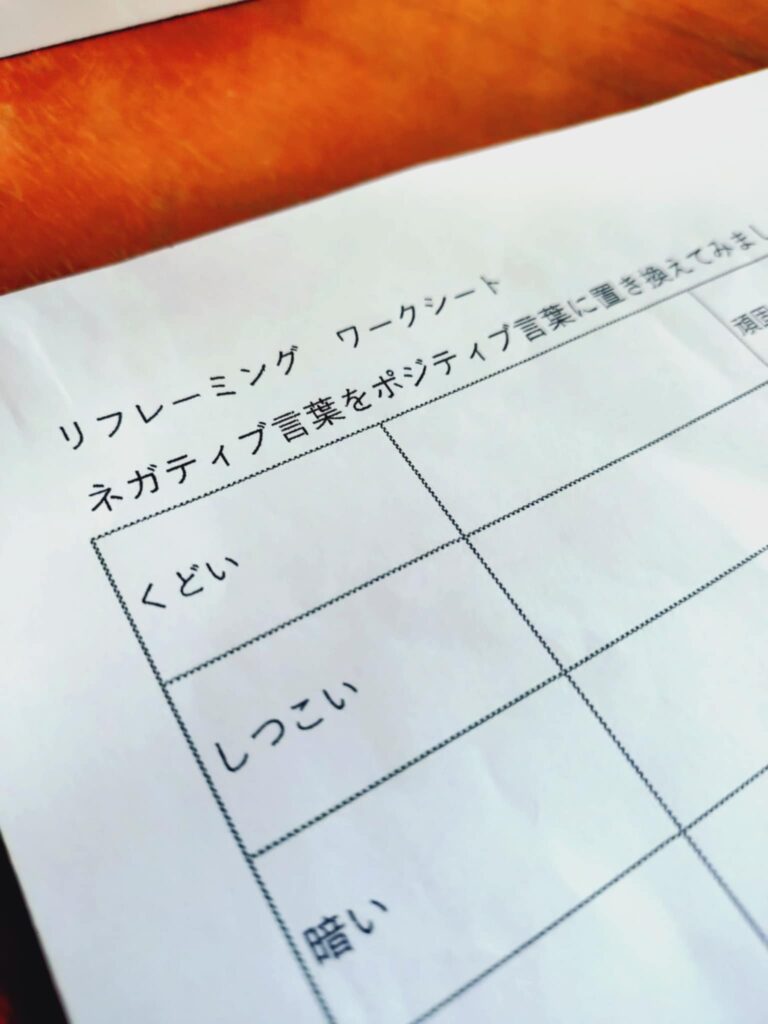 リフレーミング　ワークシート
ネガティブ言葉をポジティブ言葉に置き換えてみまし
くどい
頑固
しつこい
暗い